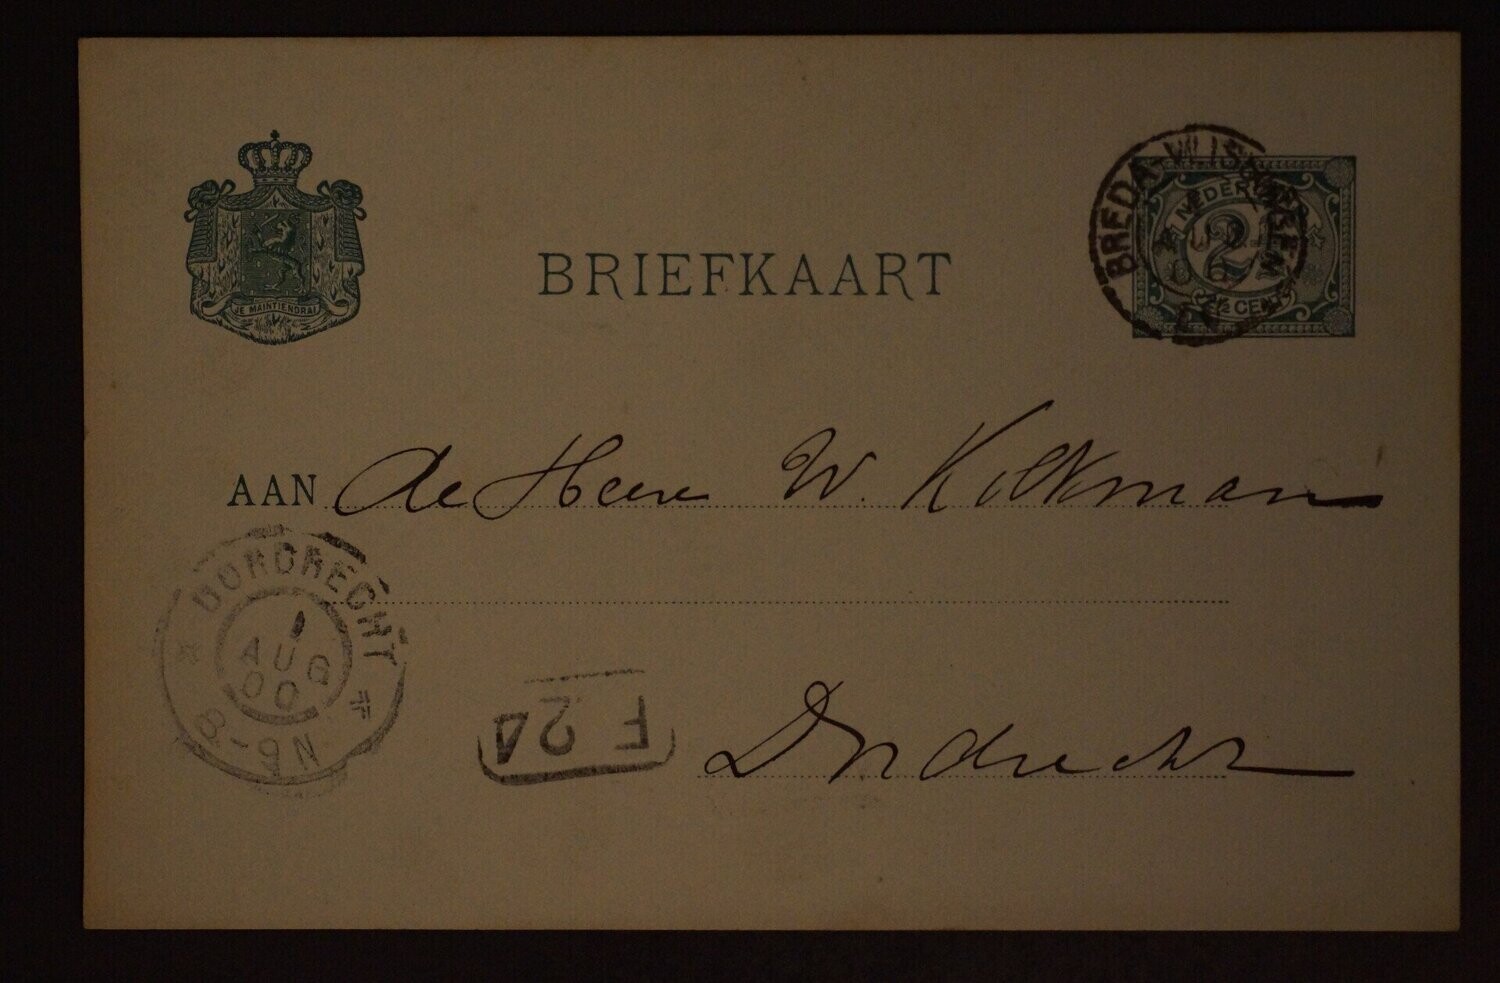 BREDA-VLISSINGEN
NEDERL
2½
2½ CENT
JE MAINTIENDRAI
BRIEFKAART
AAN de Heer W. Kolkman
DORDRECHT
1
AUG
00
8-9N
F 24
Dordrecht